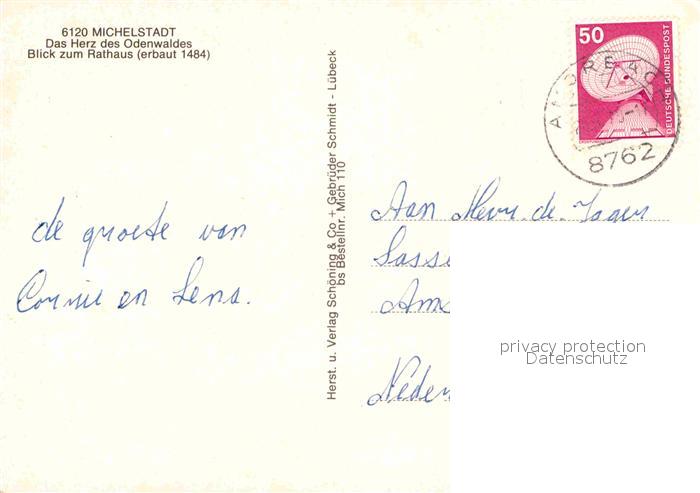 6120 MICHELSTADT
Das Herz des Odenwaldes
Blick zum Rathaus (erbaut 1484)
50
DEUTSCHE BUNDESPOST
8762
Herst. u. Verlag Schöning & Co + Gebrüder Schmidt - Lübeck
bs Bestellnr. Mich 110
de groete van
Corrie en Lena.
Aan Mevr. de Jager
Sasse
Ams
Neder
privacy protection
Datenschutz